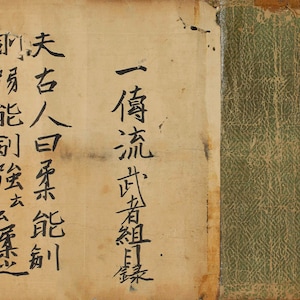 一傳流武者組目録
夫古人曰柔能制
剛弱能制強云云柔之